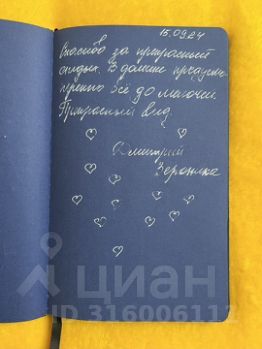 15.09.24
Спасибо за прекрасный
отдых. В домике продума-
ренно всё до мелочей
Прекрасный вид.
Дмитрий
Вероника
циан
ID 316006112